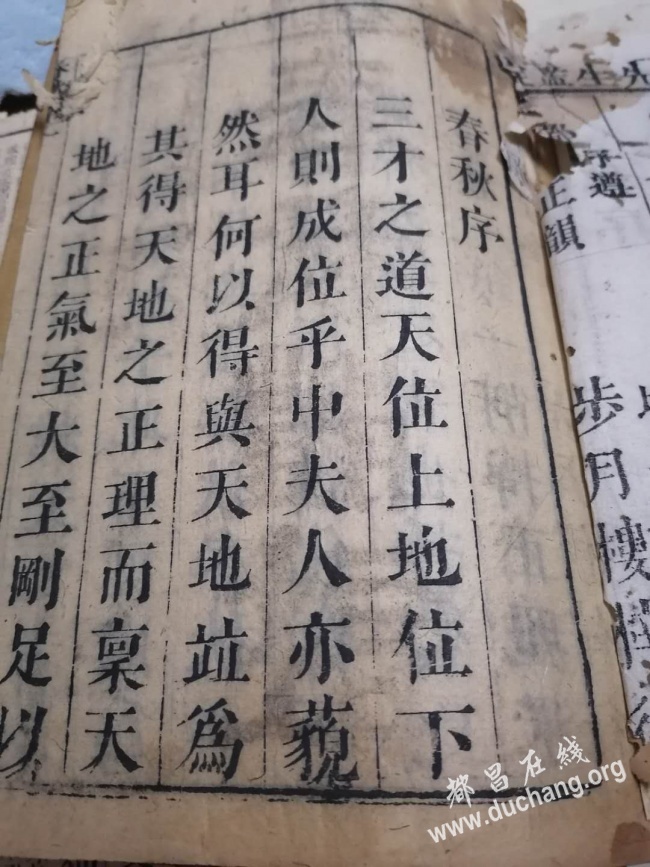 先生鑒
序遵
正韻
步月樓
春秋序
三才之道天位上地位下
人則成位乎中夫人亦藐
然耳何以得與天地竝爲
其得天地之正理而稟天
地之正氣至大至剛足以
都昌在线
www.duchang.org